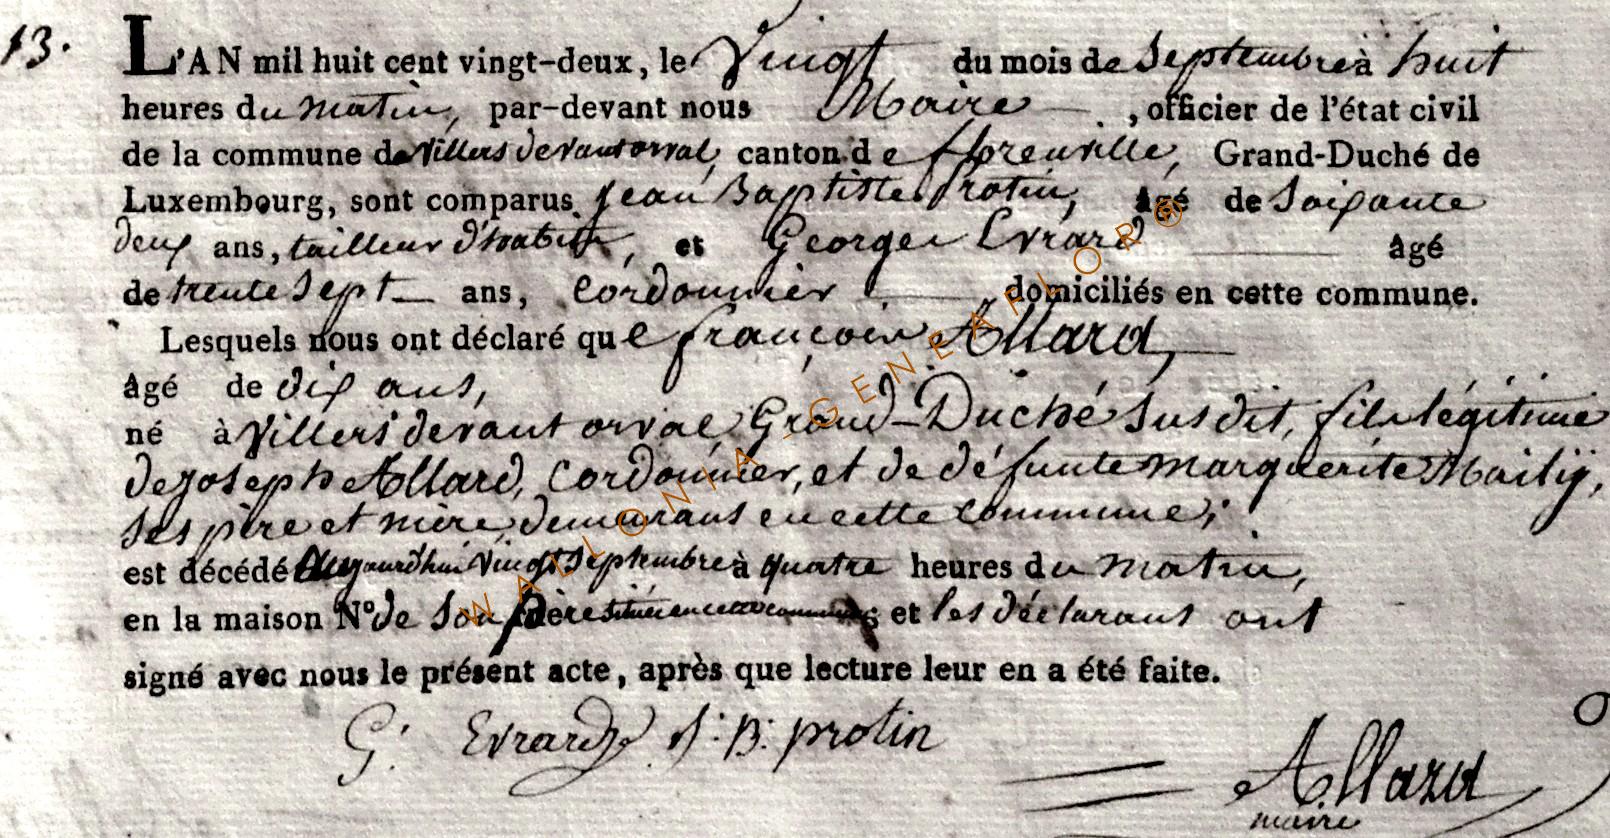 13.
L'AN mil huit cent vingt-deux, le Vingt du mois de Septembre à huit
heures du matin, par-devant nous Maire , officier de l'état civil
de la commune de Villers devant orval, canton de fflorenville, Grand-Duché de
Luxembourg, sont comparus Jean Baptiste Protin, âgé de Soixante
deux ans, tailleur d'habits, et George Evrard âgé
de trente Sept ans, Cordonnier domiciliés en cette commune.
Lesquels nous ont déclaré que françois Allard,
âgé de dix ans,
né à Villers devant orval Grand-Duché Susdit, fils légitime
de Joseph Allard, Cordonnier, et de défunte marguerite Mailij,
Ses père et mère, demeurans en cette Commune;
est décédé Aujourdhui Vingt Septembre à quatre heures du matin,
en la maison N° de Son père située en cette commune; et les déclarans ont
signé avec nous le présent acte, après que lecture leur en a été faite.
G. Evrard J: B: protin
Allard
maire
WALLONIA - GENEAFLOR ®